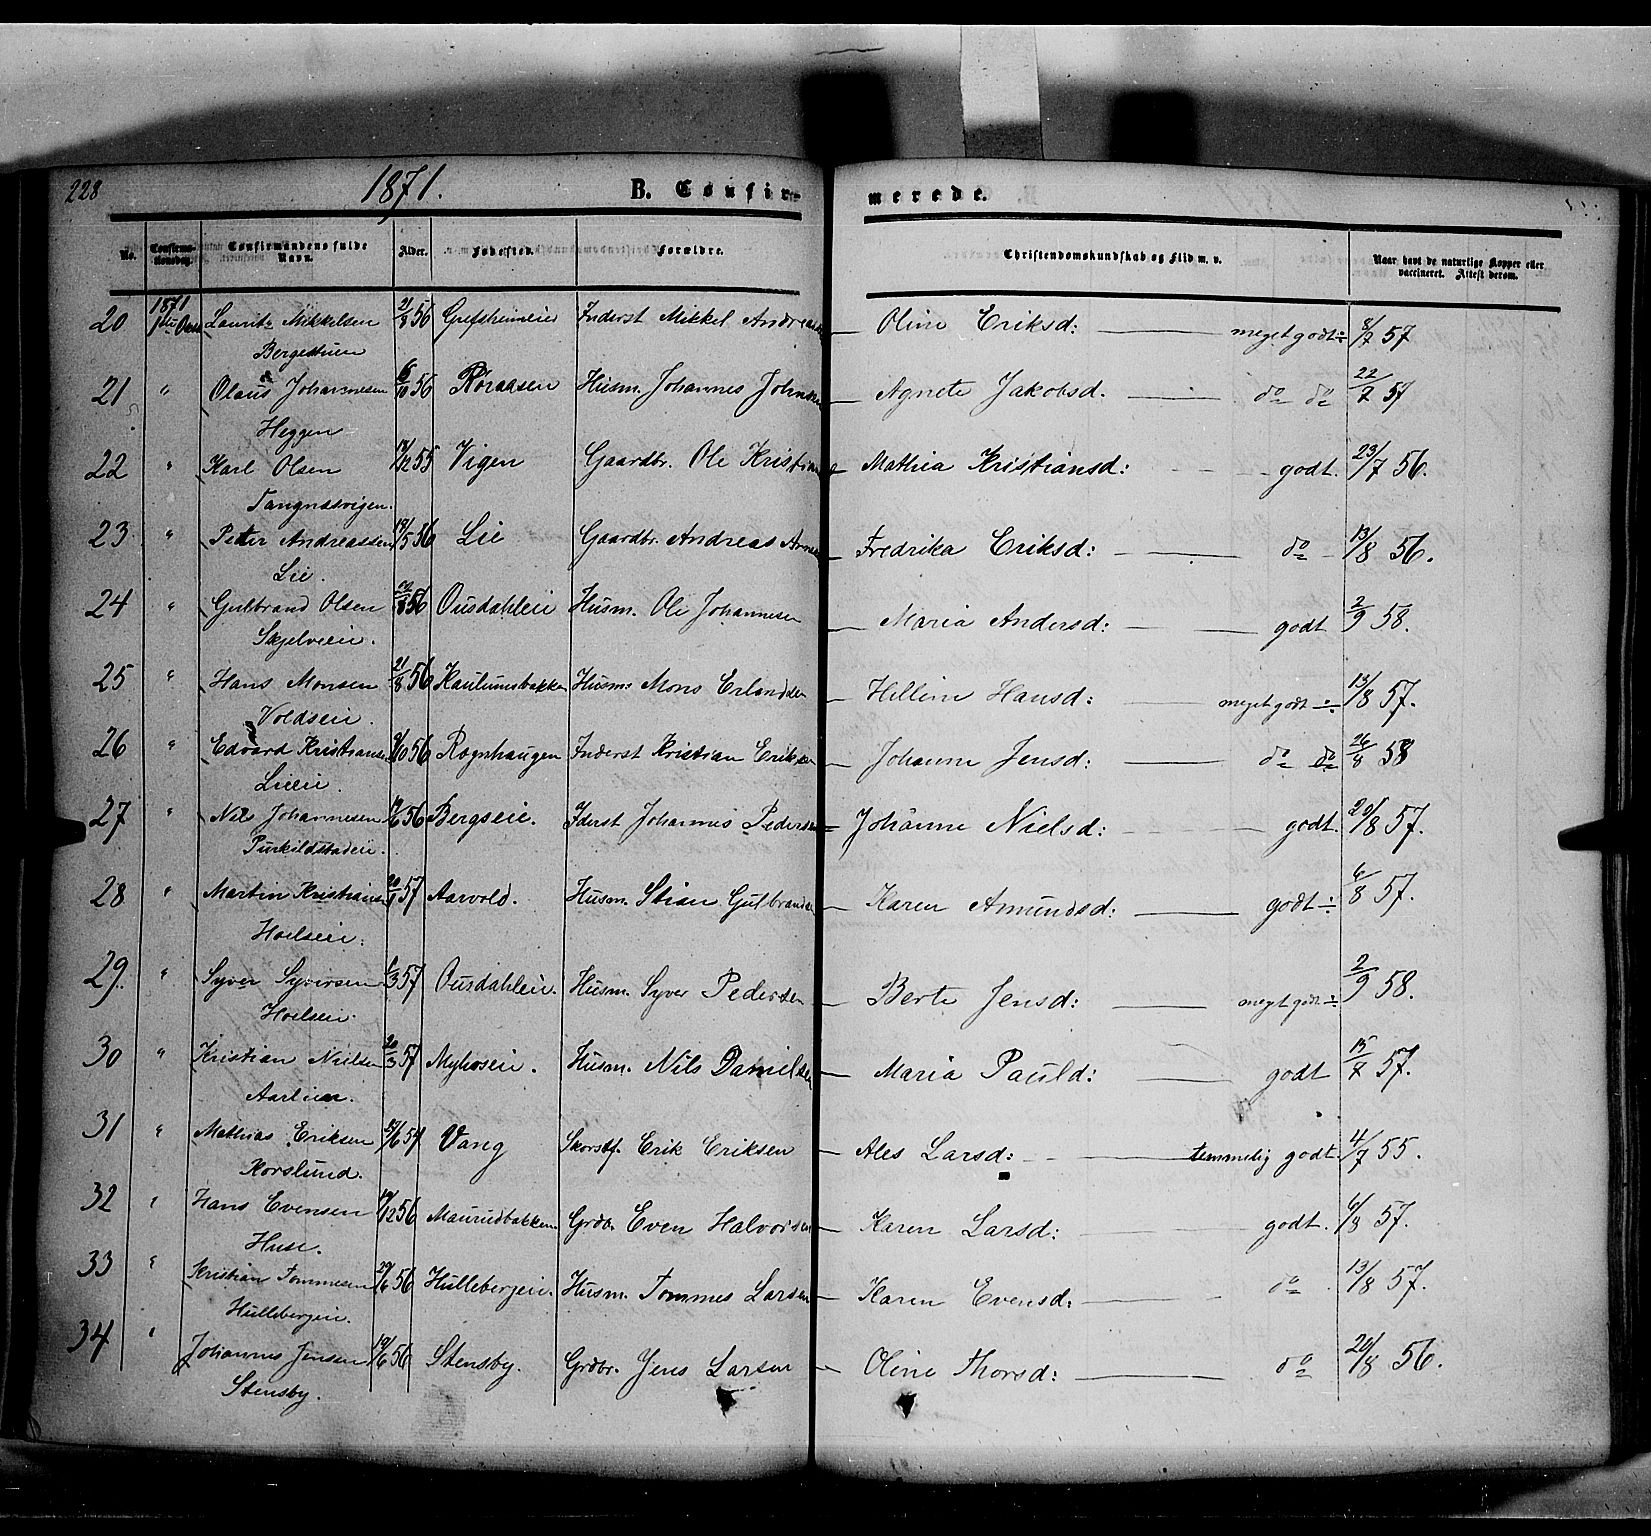 228 1871. B. Confirmerede.
No. Confirmationsdag. Confirmandens fulde Navn. Alder. Fødested. Forældre. Christendomskundskab og Flid m. v. Naar havt de naturlige Kopper eller vaccineret. Attest derom.
1871
20 1ste Lauritz Mikkelsen 21/8 56 Grefsheimeie Inderst Mikkel — Oline Eriksd: meget godt ÷ 8/7 57
Bergestuen
21 " Olaus Johannesen 6/10 56 Røraasen Husm. Johannes Johnsen Agnete Jakobsd. do do 22/7 57
Heggen
22 " Karl Olsen 17/12 55 Vigen Gaardbr. Ole — Mathia Kristiansd: godt. 23/7 56.
Tangnæsvigen.
23 " Peter Andreassen 19/5 56 Lie Gaardbr. Andreas — Fredrika Eriksd: do 13/8 56.
Lie.
24 " Gulbrand Olsen 56 Ousdahleie Husm. Ole Johannesen — Maria Andersd: godt 2/9 58.
Skjelveeie.
25 " Hans Monsen 21/8 56 Kaulumsbakken Husm: Mons Erlandsen — Helline Hansd: meget godt ÷ 13/8 57.
Voldseie.
26 " Edvard Kristians 56 Rognhaugen Inderst Kristian Eriksen — Johanne Jensd: do do 26/8 58
Lieeie.
27 " Nils Johannesen 56 Bergseie. Iderst Johannes Pedersen Johanne Nielsd: godt. 20/8 57.
28 " Martin Kristians 57 Aarvold. Husm. Stian Gulbrandsen — Karen Amundsd: godt ÷ 6/8 57.
Hoelseie.
29. " Syver Syversen 6/3 57 Ousdahleie. Husm. Syver Pedersen — Berte Jensd: meget godt ÷ 2/9 58.
Hoelseie.
30 " Kristian Nielsen 20/3 57 Myhrseie. Husm. Nils Danielsen — Maria Pauld: godt 15/7 57.
31 " Mathias Eriksen 54 Vang Skorstf. Erik Eriksen — Ales Larsd: temmelig godt. 4/7 55.
Korslund.
32 " Hans Evensen 19/12 56 Maurudbakken Grdbr. Even Halvorsen — Karen Larsd: godt. 6/8 57.
Huse.
33 " Kristian Tommesen 29/6 56 Hullebergeie. Husm. Tommes Larsen — Karen Evensd: do 13/8 57.
Hullebergeie.
34 " Johannes Jensen 19/6 56 Stensby. Grdbr. Jens Larsen — Oline Thorsd: do 20/8 56.
Stensby.